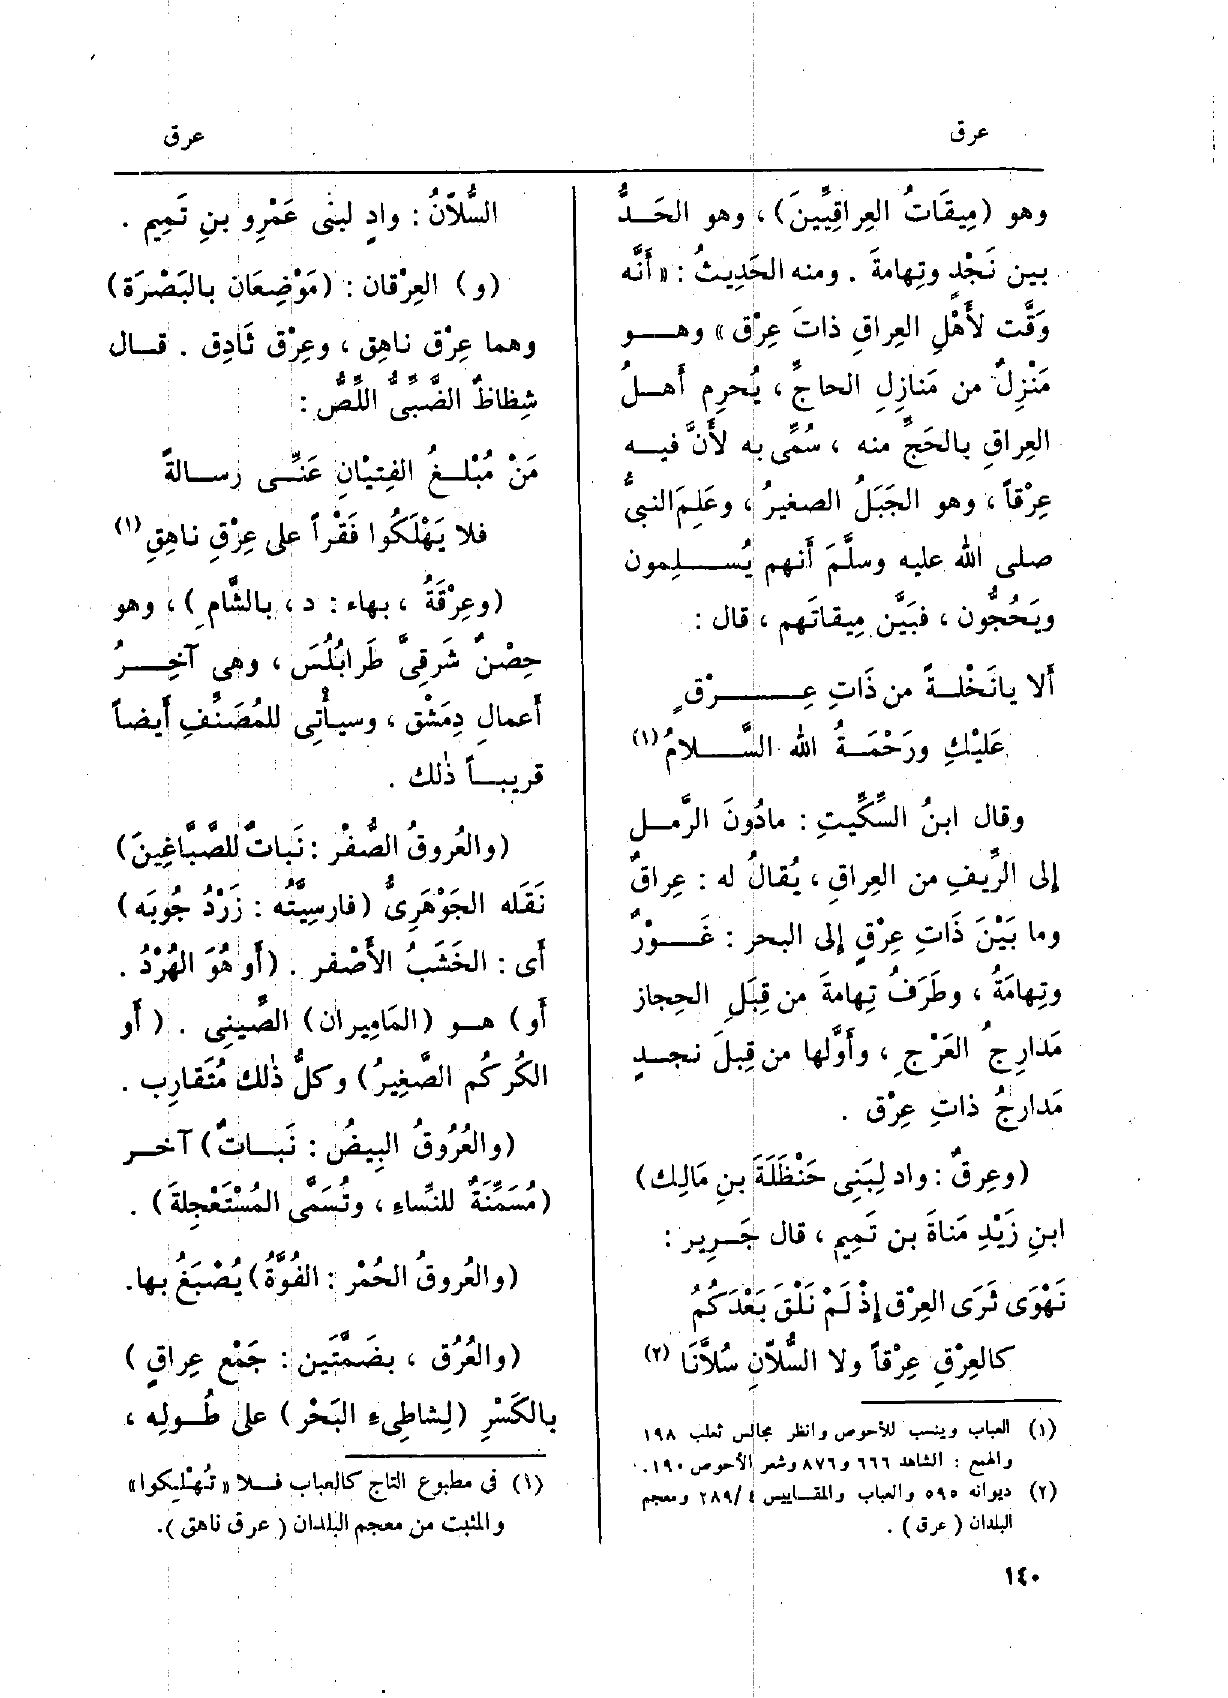 عرق
عرق
وهو (مِيقَاتُ العِراقِيِّينَ)، وهو الحَــدُّ
بين نَجْدٍ وتِهامةَ . ومنه الحَدِيثُ : « أَنَّه
وَقَّت لأَهْلِ العِراقِ ذاتَ عِرْقٍ » وهـــو
مَنْزِلٌ من مَنازِلِ الحاجِّ، يُحرِم أَهــلُ
العِراقِ بالحَجِّ منه ، سُمِّى به لأَنَّ فيــه
عِرْقاً ، وهو الجَبَلُ الصغيرُ ، وعَلِمَ النبىُّ
صلى الله عليه وسلَّمَ أَنهم يُســـلِمون
ويَحُجُّون ، فبَيَّن مِيقاتَهم ، قال :
أَلا يانَخْلــةً من ذَاتِ عِــــــرْقٍ
عَلَيْكِ ورَحْمَــةُ الله السَّـــلامُ (١)
وقال ابنُ السِّكِّيتِ : مادُونَ الرَّمــل
إلى الرِّيفِ من العِراقِ ، يُقالُ له : عِراقٌ
وما بَيْنَ ذَاتِ عِرْقٍ إلى البحر : غَـــوْرٌ
وتِهامَةُ ، وطَرَفُ تِهامةَ من قِبَلِ الحِجاز
مَدارِجُ العَرْجِ ، وأَوَّلها من قِبَلَ نجــدٍ
مَدارِجُ ذاتِ عِرْق .
(وعِرقٌ : واد لِبَنِى حَنْظَلَةَ بنِ مَالِك)
ابنِ زَيْدِ مَناةَ بن تَمِيم ، قال جَــرِير :
نَهْوَى ثَرَى العِرْقِ إِذْ لَمْ نَلْقَ بَعْدَكُمُ
كالعِرْقِ عِرْقاً ولا السُّلاّنِ سُلاَّنَا (٢)
(١) العباب وينسب للأحوص وانظر مجالس ثعلب ١٩٨
والهمع : الشاهد ٦٦٦ و٨٧٦ وشعر الأحوص ١٩٠.
(٢) ديوانه ٥٩٥ والعباب والمقاييس ٤/ ٢٨٩ ومعجم
البلدان ( عرق ) .
١٤٠
السُّلاّنُ : وادٍ لبنى عَمْرِو بنِ تَمِيم .
(و) العِرْقان : (مَوْضِعَان بالبَصْرَة)
وهما عِرْق ناهِق ، وعِرْق ثَادِق . قــال
شِظاظٌ الضَّبِّىُّ اللِّصُّ :
مَنْ مُبْلــغُ الفِتيْانِ عَنِّــى رِســالةً
فلا يَهْلَكُوا فَقْراً على عِرْقِ ناهِقِ (١)
(وعِرْقَةُ ، بهاء : د ، بالشَّامِ )، وهو
حِصْنٌ شَرقِىَّ طَرابُلُسَ ، وهى آخِــرُ
أَعمالِ دِمَشْق ، وسيـأْتِى للمُصَنِّفِ أَيضاً
قريبــاً ذٰلك .
(والعُروقُ الصُّفْر : نَباتٌ للصَّبَّاغِينَ)
نَقَله الجَوْهَرِىُّ (فارسِيَّتُه : زَرْدُ جُوبَه)
أى : الخَشَبُ الأَصْفر . (أَو هُوَ الهُرْدُ .
أَو) هــو (المَامِيران) الصِّينِى . ( أَو
الكُركُم الصَّغِيرُ) وكلُّ ذٰلك مُتَقارِب .
(والعُرُوقُ البِيضُ : نَبــاتٌ) آخــر
(مُسَمِّنَةٌ للنِّساءِ ، وتُسَمَّى المُسْتَعْجِلةَ) .
(والعُروقُ الحُمْر : الفُوَّةُ) يُصْبَغُ بها.
(والعُرُق ، بضَمَّتَين : جَمْع عِراقٍ )
بالكَسْرِ (لِشاطِىءِ البَحْر) على طُــولِه ،
(١) فى مطبوع التاج كالعباب فــلا « تُهْلِيكوا»
والمثبت من معجم البلدان ( عرق ناهق ).